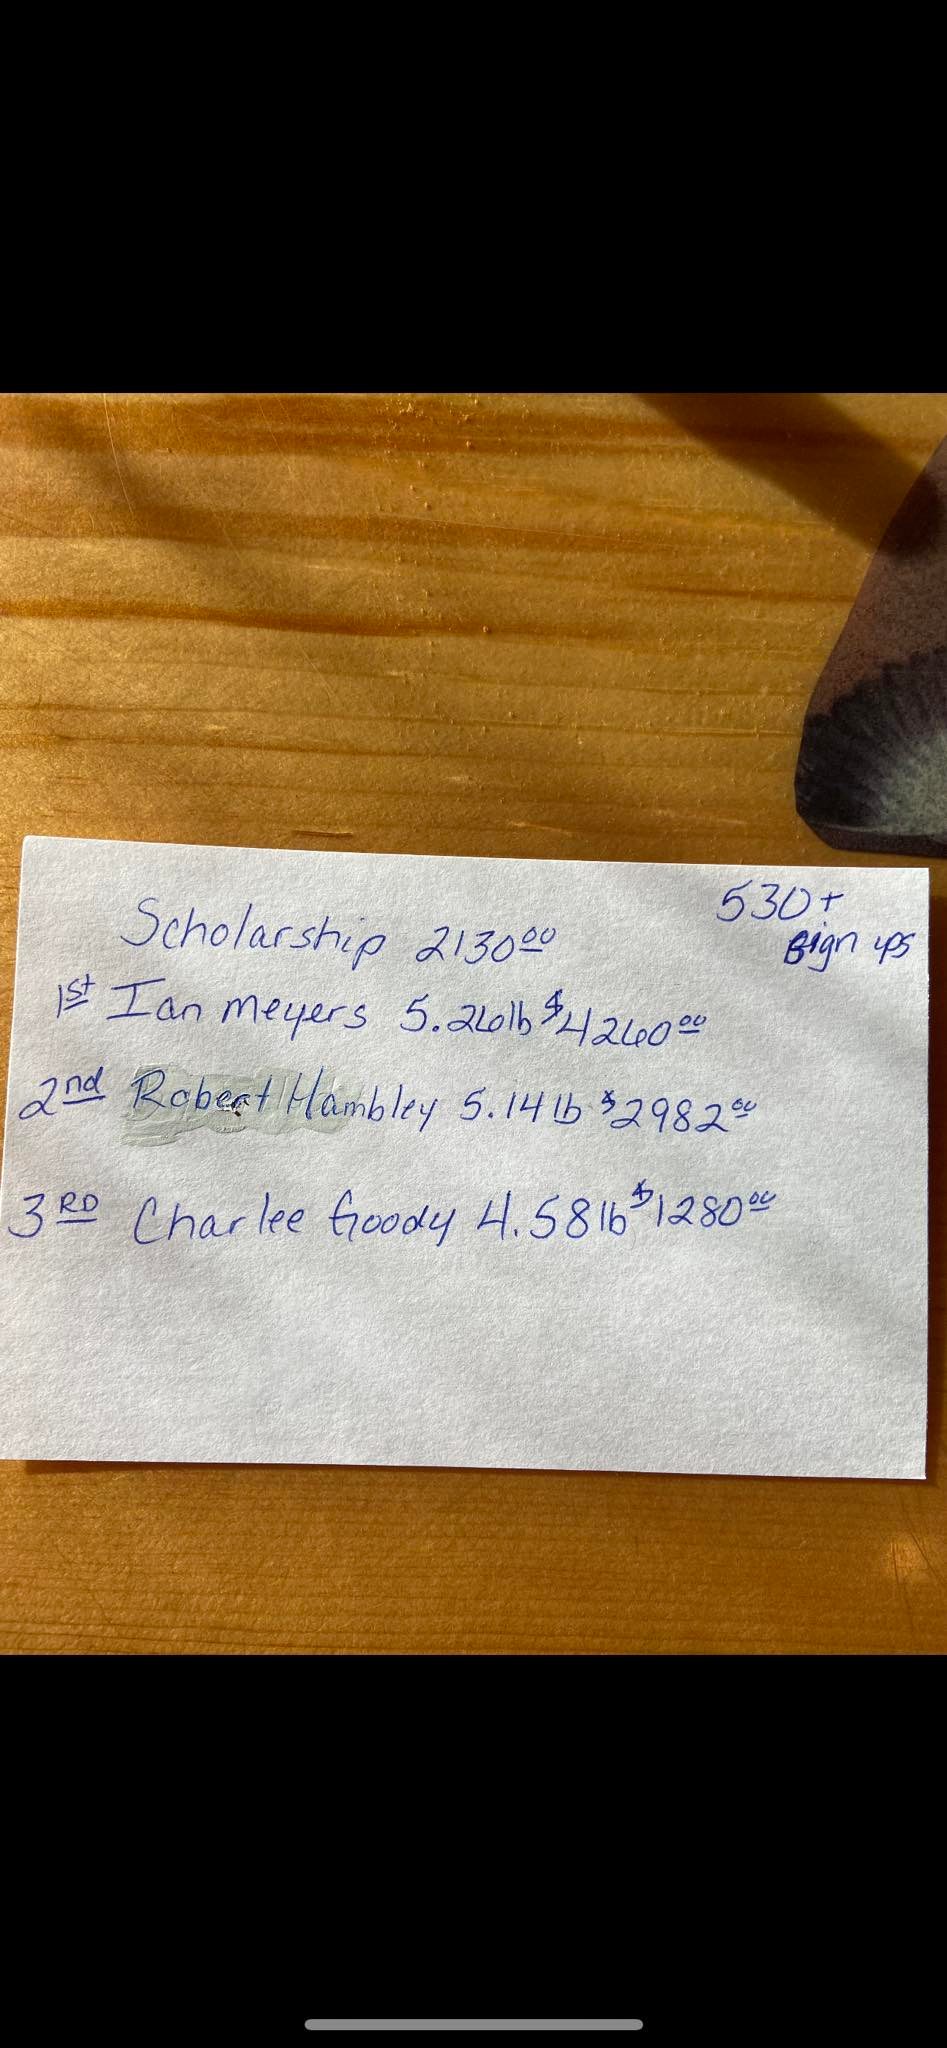 530+
sign ups
Scholarship 2130⁰⁰
1st Ian Meyers 5.26lb $4260⁰⁰
2nd Robert Hambley 5.14 lb $2982⁰⁰
3RD Charlee Goody 4.58lb $1280⁰⁰